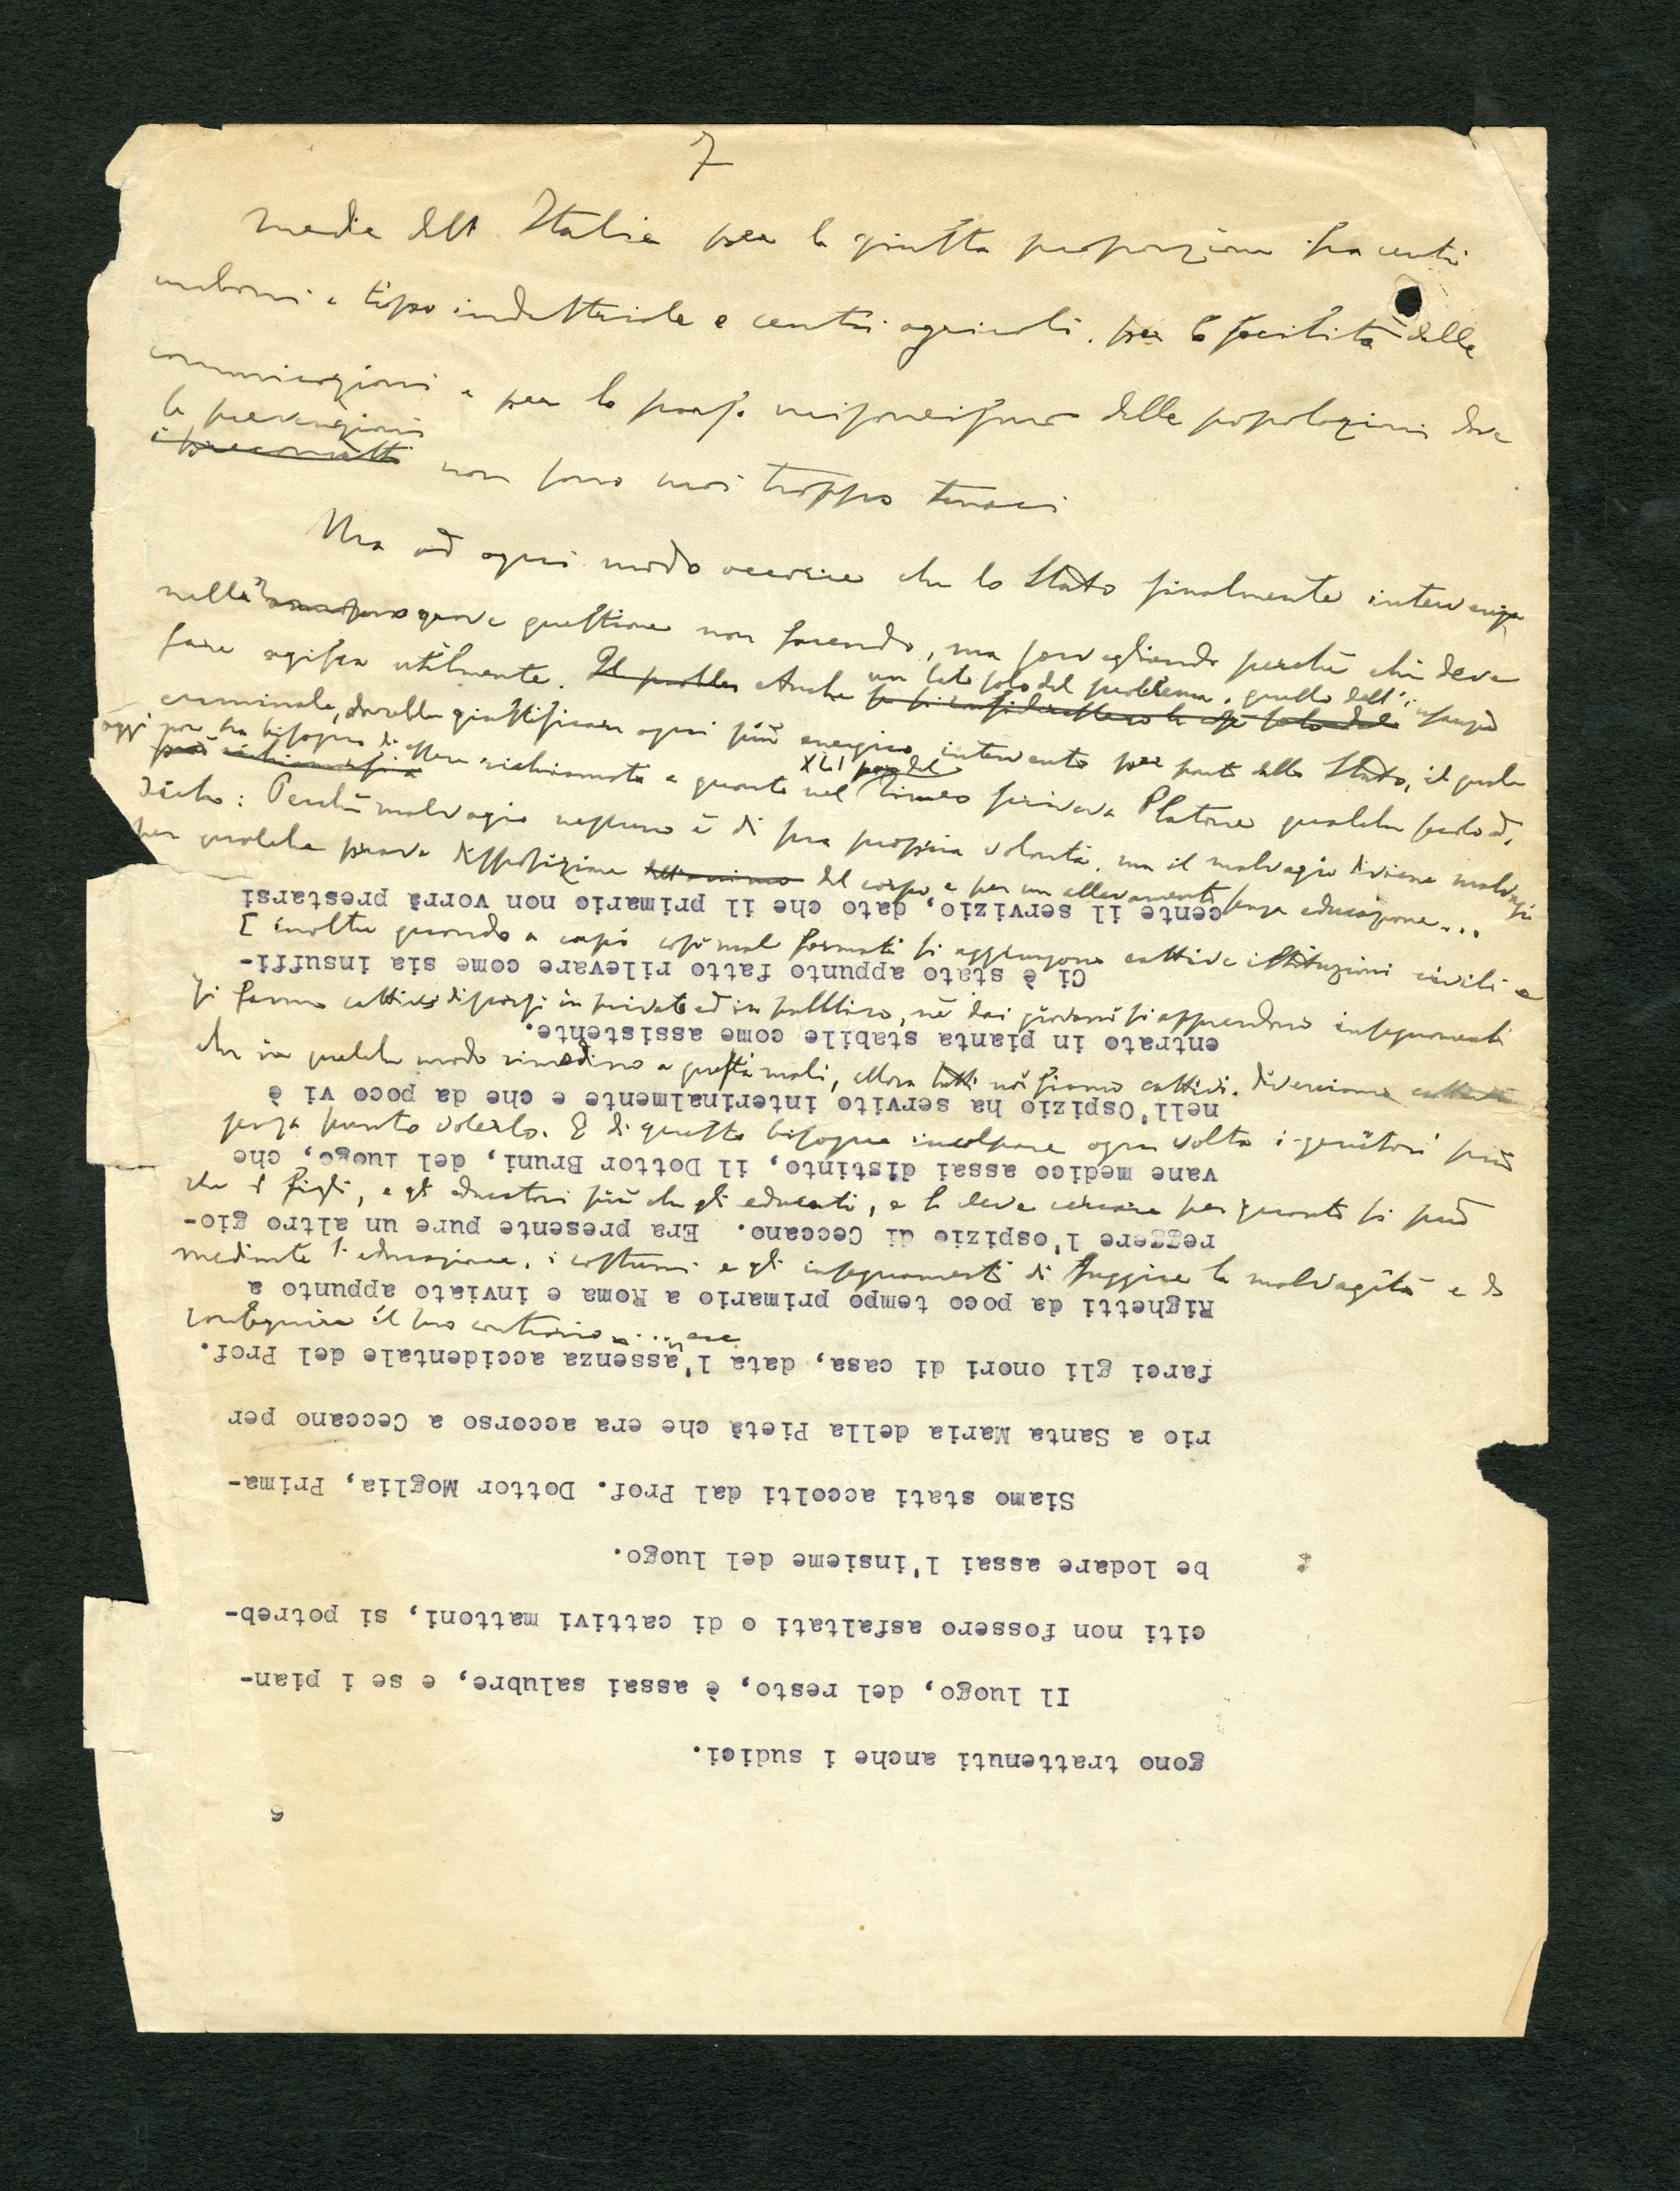 7
media dell' Italia per la giusta proporzione fra centri
urbani a tipo industriale e centri agricoli, per la facilità delle
comunicazioni e per lo scarso misoneismo delle popolazioni dove
le prevenzioni
i preconcetti non sono mai troppo tenaci
Ma ad ogni modo occorre che lo Stato finalmente intervenga
nella grave questione non facendo, ma sorvegliando perchè chi deve
fare agisca utilmente. Il problem Anche un lato solo del problema, quello dell'infanzia
criminale, dovrebbe giustificare ogni più energico intervento per parte dello Stato, il quale
oggi pure ha bisogno di essere richiamato a quanto nel XLI del Timeo scriveva Platone qualche secolo d.
dietro: Perchè malvagio nessuno è di sua propria volontà, ma il malvagio diviene malvagio
per qualche prava disposizione del corpo, e per un allevamento senza educazione...
E inoltre quando a corpi così mal formati si aggiungono cattive istituzioni civili e
si fanno cattivi discorsi in privato ed in pubblico, nè dai giovani si apprendono insegnamenti
che in qualche modo rimedino a questi mali, allora tutti noi siamo cattivi, diveniamo cattivi
senza punto volerlo. E di questo bisogna incolpare ogni volta i genitori più
che i figli, e gli educatori più che gli educati, e si deve cercare per quanto si può
mediante l'educazione, i costumi e gli insegnamenti di fuggire la malvagità e di
conseguire il suo contrario.... ecc
6
gono trattenuti anche i sudici.
Il luogo, del resto, è assai salubre, e se i pian-
citi non fossero asfaltati o di cattivi mattoni, si potreb-
be lodare assai l'insieme del luogo.
Siamo stati accolti dal Prof. Dottor Moglia, Prima-
rio a Santa Maria della Pietà che era accorso a Ceccano per
farci gli onori di casa, data l'assenza accidentale del Prof.
Righetti da poco tempo primario a Roma e inviato appunto a
reggere l'ospizio di Ceccano. Era presente pure un altro gio-
vane medico assai distinto, il Dottor Bruni, del luogo, che
nell'Ospizio ha servito interinalmente e che da poco vi è
entrato in pianta stabile come assistente.
Ci è stato appunto fatto rilevare come sia insuffi-
cente il servizio, dato che il primario non vorrà prestarsi